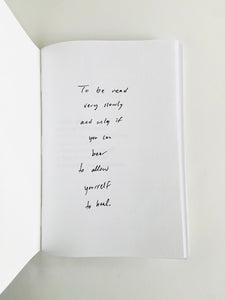 To be read
very slowly
and only if
you can
bear
to allow
yourself
to heal.